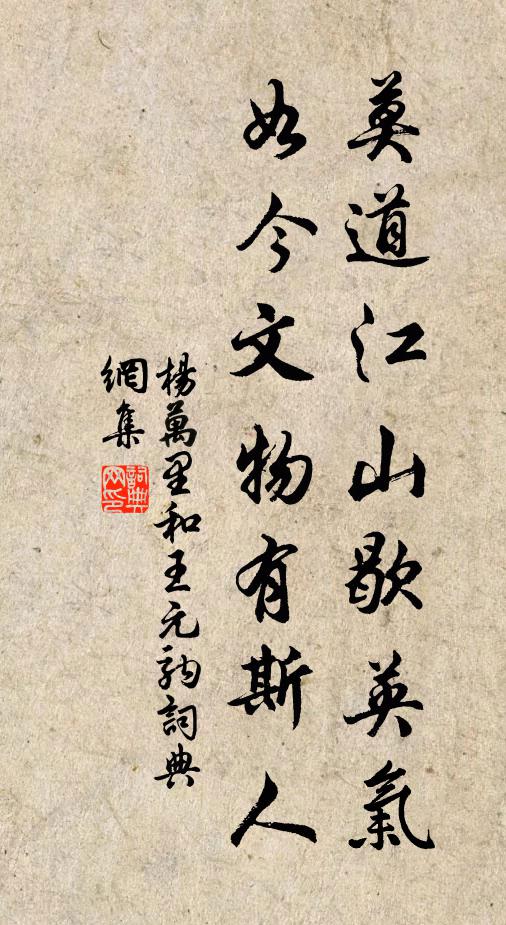 莫道江山歇英氣
如今文物有斯人
楊萬里和王元輈詞典
網集
詞典
网印